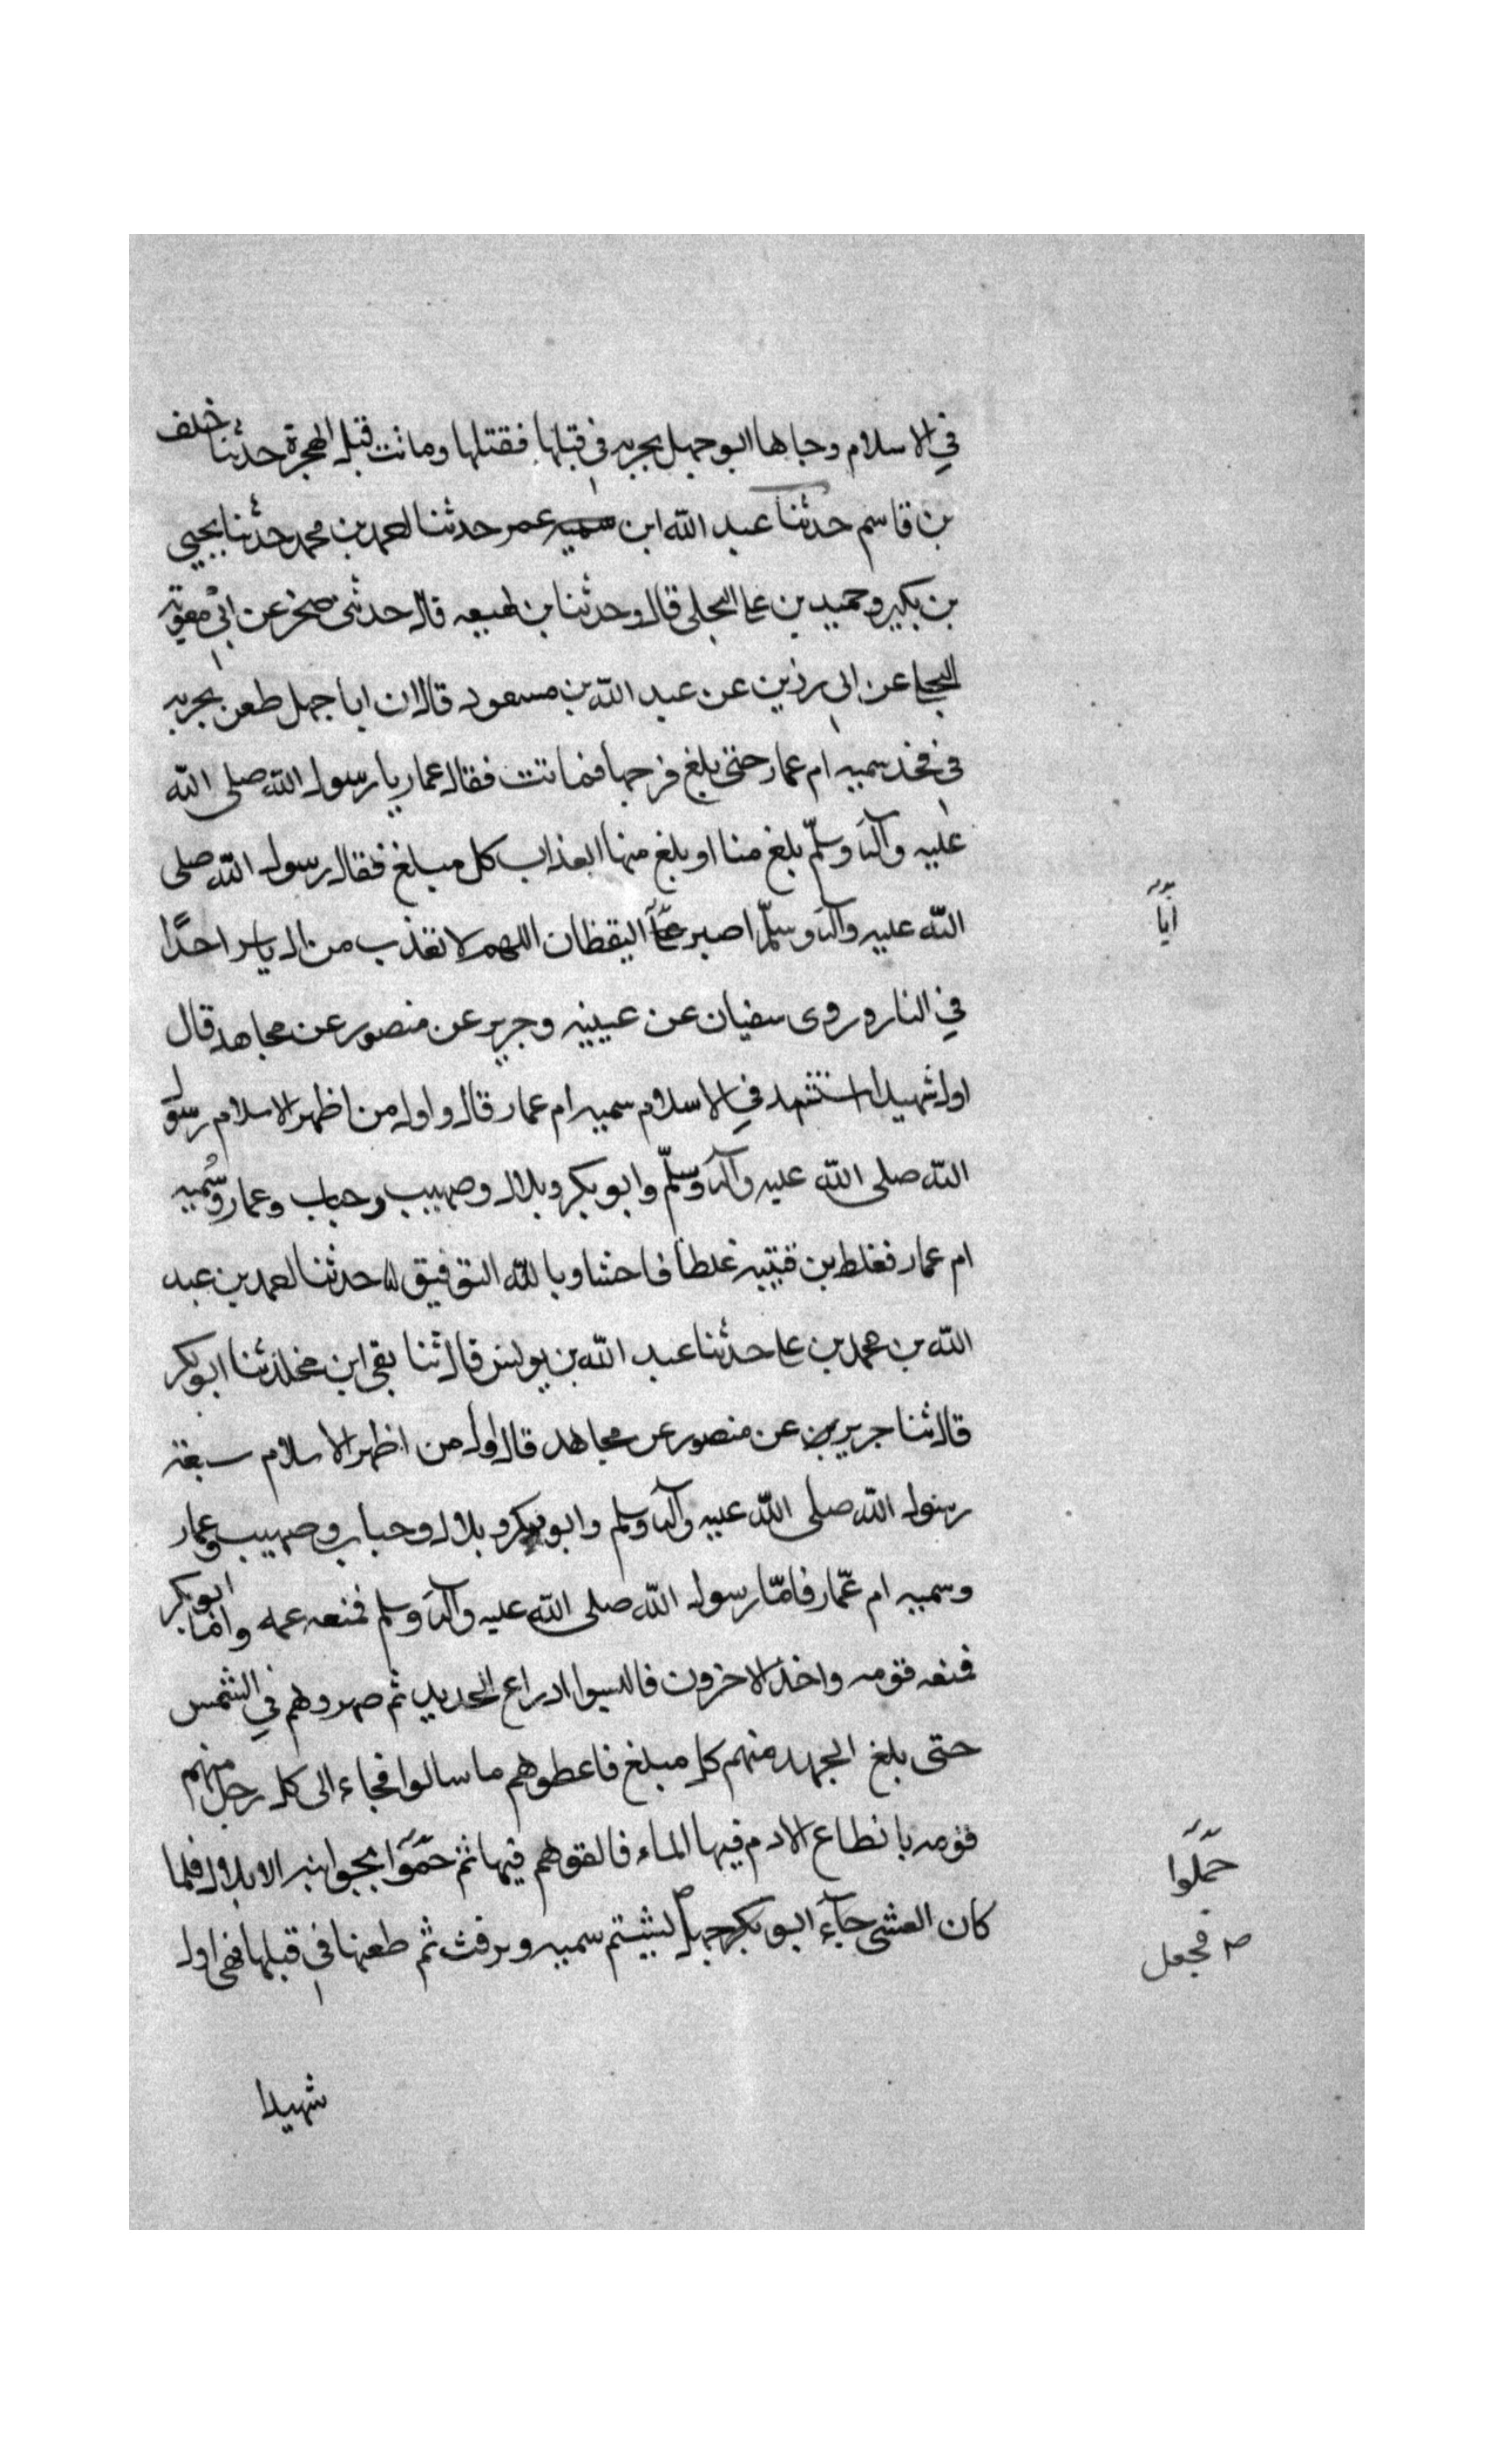 في الاسلام وجاها ابو جهل بحربه في قبلها فقتلها وماتت قبل الهجرة حدثنا خلف
بن قاسم حدثنا عبد الله ابن عمر حدثنا احمد بن محمد حدثنا يحيى
بن بكير وحميد بن علي البجلي قال وحدثنا بن لهيعه قال حدثني صخر عن ابي معوية
البجلي عن ابي رزين عن عبد الله بن مسعود قال ان ابا جهل طعن بحربه
في فخذ سميه ام عمار حتى بلغ فرجها فماتت فقال عمار يا رسول الله صلى الله
عليه وآله وسلّم بلغ منا او بلغ منها العذاب كل مبلغ فقال رسول الله صلى
الله عليه وآله وسلّم اصبر اليقظان اللهم لا تعذب من ال ياسر احدًا
أبا
في النار وروى سفيان عن عيينه وجرير عن منصور عن مجاهد قال
اول شهيد استشهد في الاسلام سميه ام عمار قال واول من اظهر الاسلام رسول
الله صلى الله عليه وآله وسلّم وابو بكر وبلال وصهيب وخباب وعمار وسُميه
ام عمار فغلط بن قتيبه غلطا فاحشا وبالله التوفيق حدثنا احمد بن عبد
الله بن محمد بن علي حدثنا عبد الله بن يونس قال ثنا بقي ابن مخلد ثنا ابو بكر
قال ثنا جرير عن منصور عن مجاهد قال اول من اظهر الاسلام سبعة
رسول الله صلى الله عليه وآله وسلم وابو بكر وبلال وخباب وصهيب وعمار
وسميه ام عمّار فامّا رسول الله صلى الله عليه وآله وسلم فمنعه عمه واما ابو بكر
فمنعه قومه واخذ الاخرون فالبسوا ادراع الحديد ثم صهروهم في الشمس
حتى بلغ الجهد منهم كل مبلغ فاعطوهم ما سالوا فجاء الى كل رجل منهم
قومه بانطاع الادم فيها الماء فالقوهم فيها ثم حمّوا بجوانبه الا بلال فلما
حمّلوا
كان العشي جآء ابو جهل لبشتم سميه ويرفث ثم طعنها في قبلها فهي اول
صـ فجعل
شهيدا